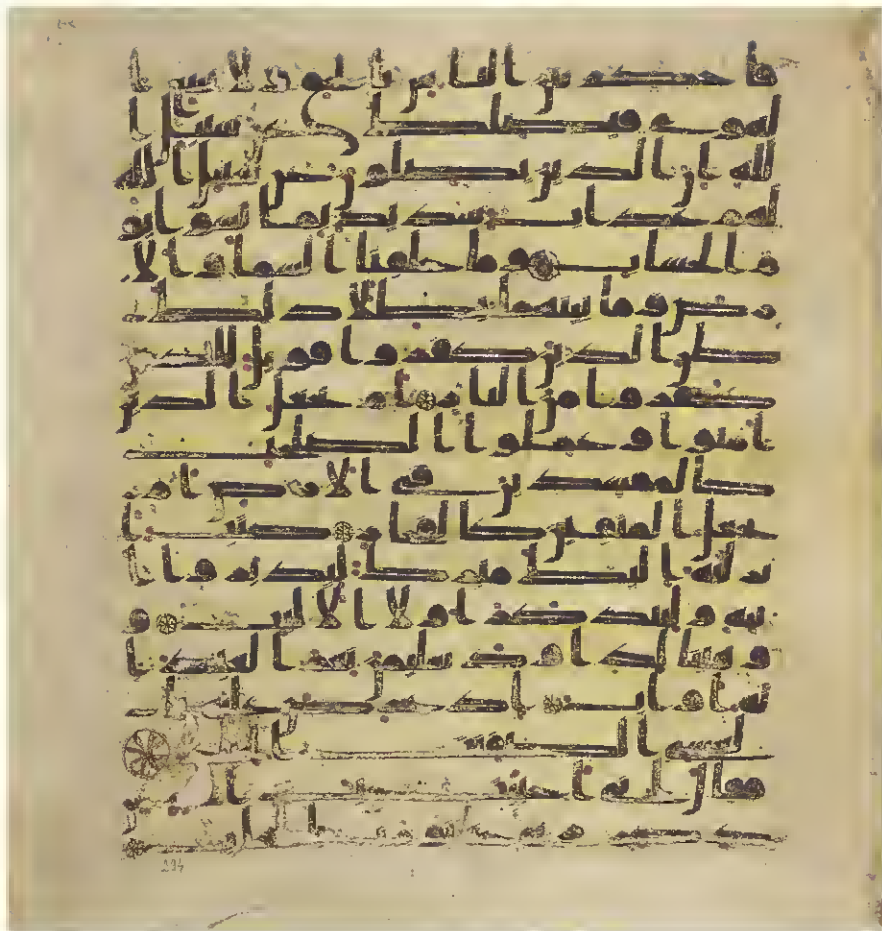 فاحكم بين الناس بالحق ولا تتبع ا
لهوى فيضلك عن سبيل ا
لله ان الذين يضلون عن سبيل الله
لهم عذاب شديد بما نسوا يو
م الحساب وما خلقنا السما والا
رض وما بينهما بطلا ذلك
ظن الذين كفروا فويل للذين
كفروا من النار ام نجعل الذين
امنوا وعملوا الصلحت
كالمفسدين في الارض ام
نجعل المتقين كالفجار كتب ا
نزلنه اليك مبرك ليدبروا ا
يته وليتذكر اولوا الالبب و
هبنا لداود سليمن نعم العبد ا
نه اواب اذ عرض عليه با
لعشي الصفنت الجياد
فقال اني احببت حب الخير عن
ذكر ربي حتى توارت بالحجاب
234